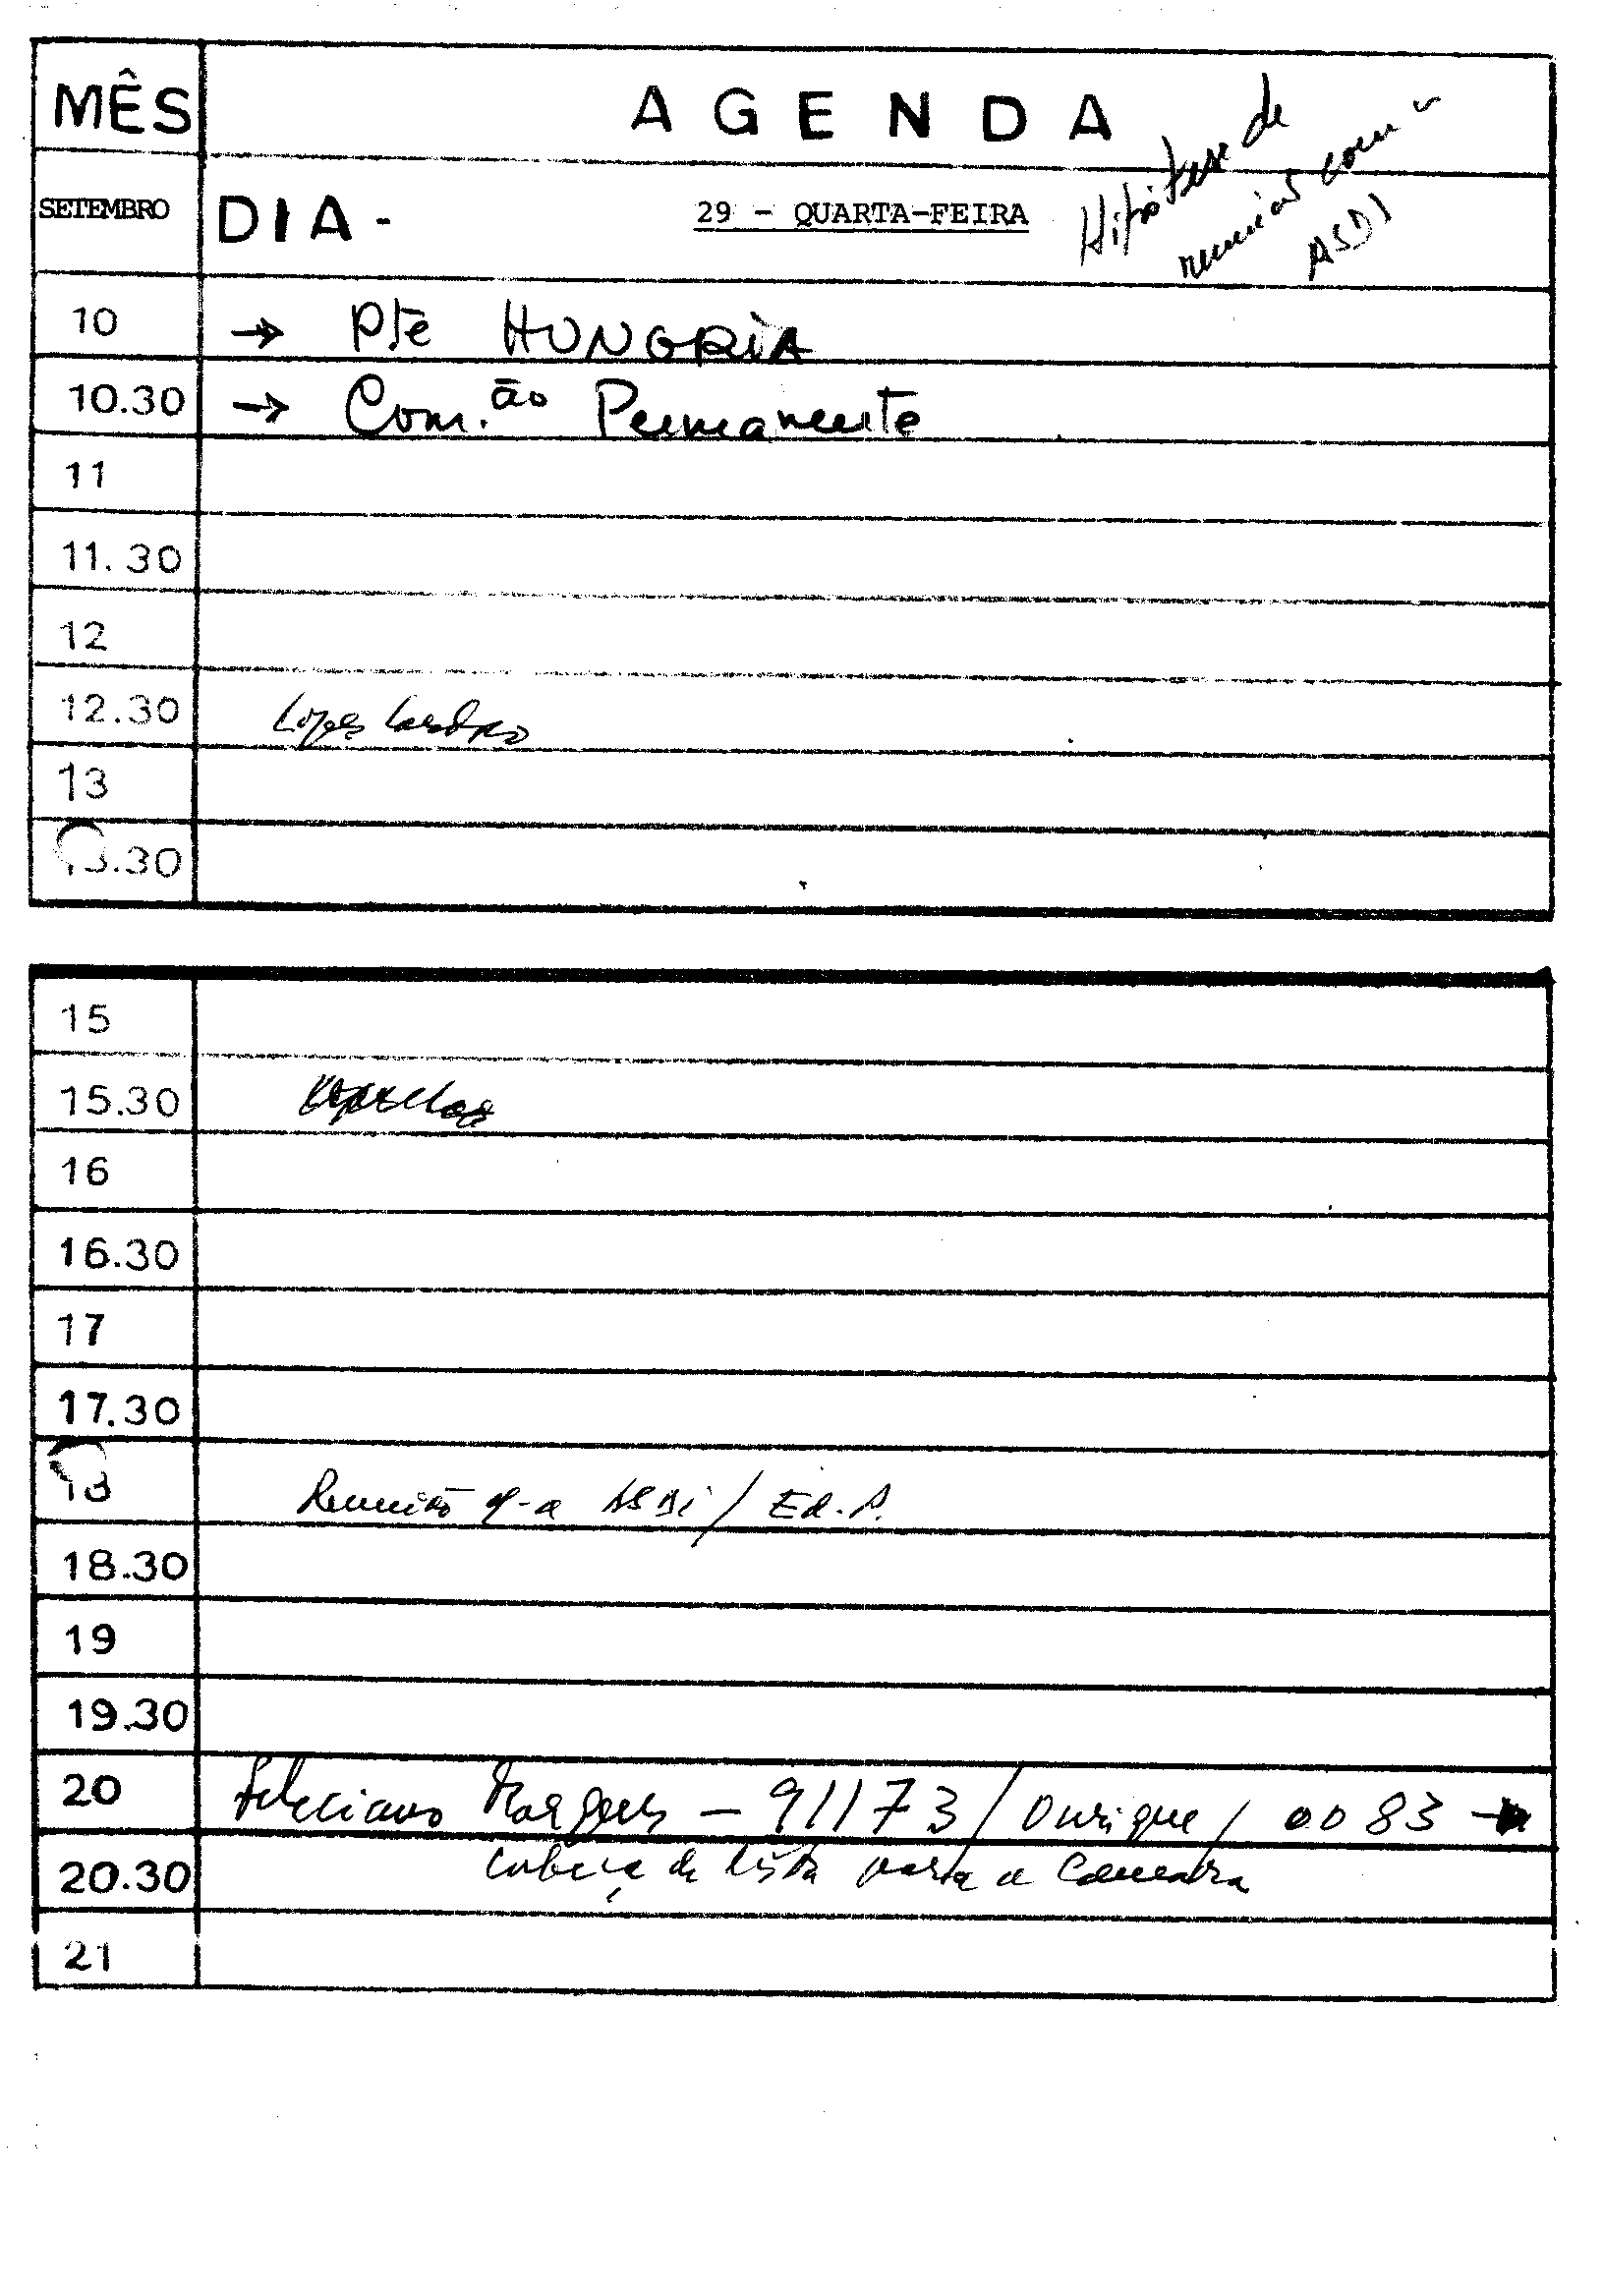 MÊS AGENDA
SETEMBRO DIA - 29 - QUARTA-FEIRA
Hipótese de
reunião com
ASDI
10 → Pte HUNGRIA
10.30 → Com.ão Permanente
11
11.30
12
12.30 Lopes Cardoso
13
13.30
15
15.30
16
16.30
17
17.30
18 Reunião c/-a ASDI / Ed. A.
18.30
19
19.30
20 Feliciano Marques - 91173 / Ourique / 0083
20.30 Cabeça de lista para a Camara
21